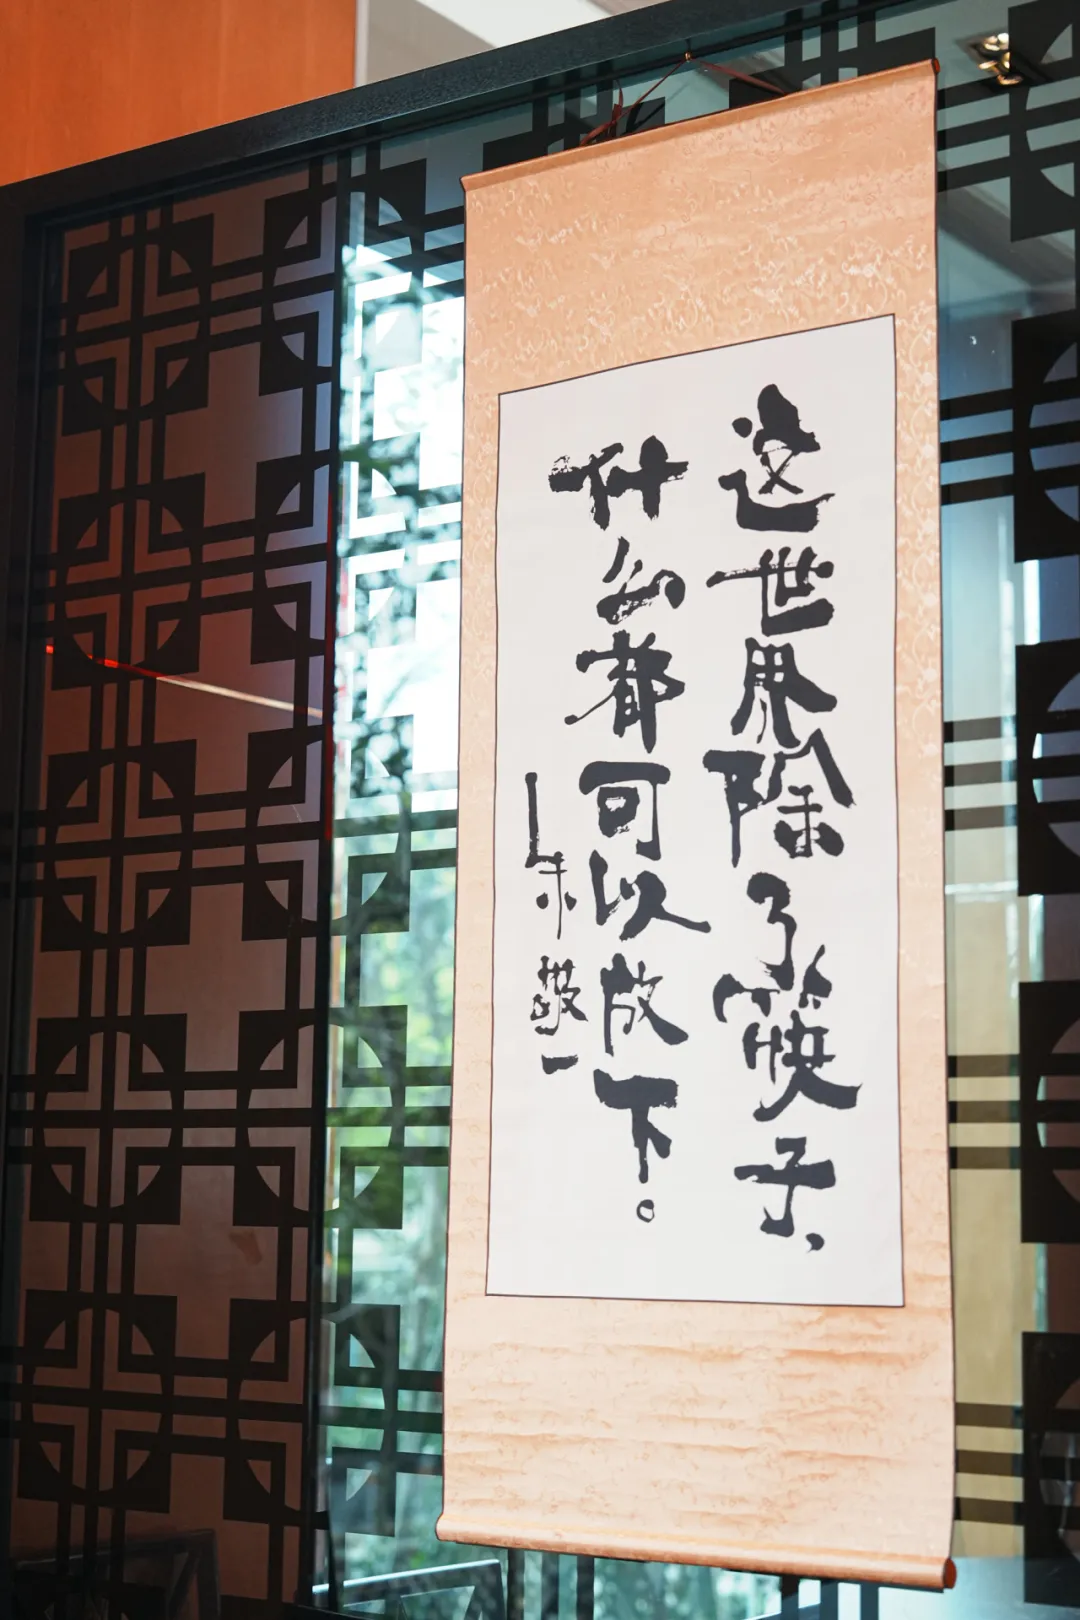 这世界除了筷子、
什么都可以放下。
朱敬一